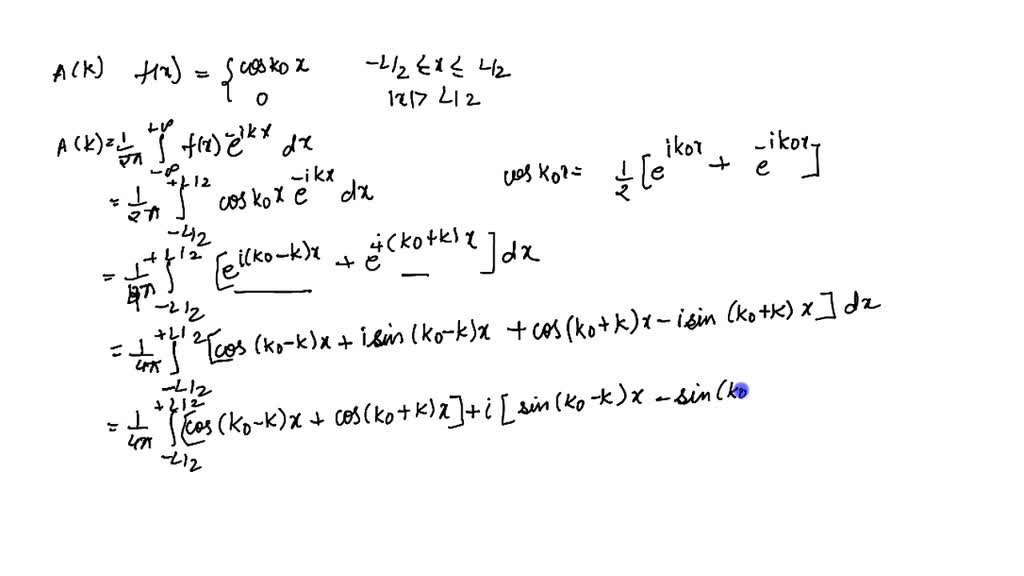 A(k) f(x) = { cos k0 x -L/2 ≤ x ≤ L/2
0 |x| > L/2
A(k) = 1/2π ∫_{-∞}^{+∞} f(x) e^{-ikx} dx
cos k0x = 1/2 [e^{ik0x} + e^{-ik0x}]
= 1/2π ∫_{-L/2}^{+L/2} cos k0 x e^{-ikx} dx
= 1/4π ∫_{-L/2}^{+L/2} [e^{i(k0-k)x} + e^{-i(k0+k)x}] dx
= 1/4π ∫_{-L/2}^{+L/2} [cos (k0-k)x + i sin (k0-k)x + cos (k0+k)x - i sin (k0+k) x] dx
= 1/4π ∫_{-L/2}^{+L/2} [cos (k0-k)x + cos (k0+k)x] + i [sin (k0-k)x - sin (k0